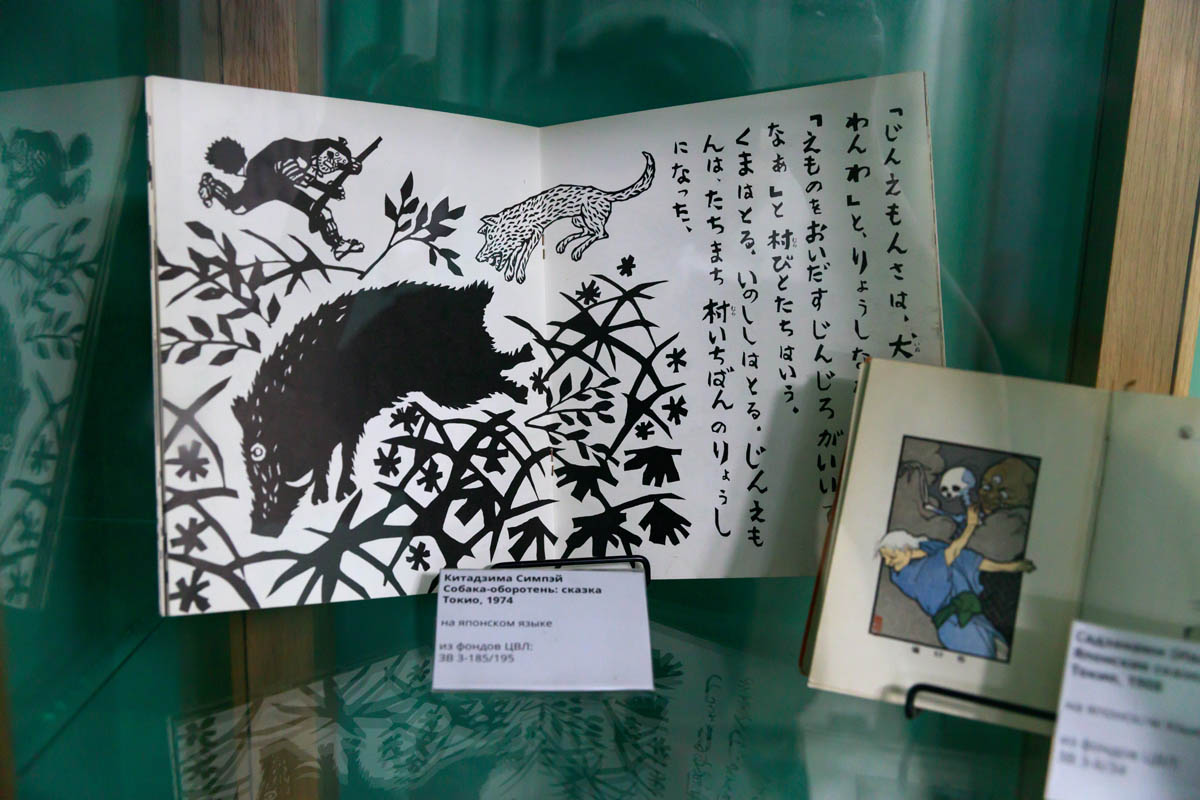 「じんえもんさは、犬
わんわ」と、りょうしな
「えものをおいだすじんじろがいい
なぁ」と村びとたちはいう。
くまはとる。いのししはとる。じんえも
んは、たちまち村いちばんのりょうし
になった。
Китадзима Симпэй
Собака-оборотень: сказка
Токио, 1974
на японском языке
из фондов ЦВЛ:
ЗВ 3-185/195
Садзанами
Японские
Токио,
на японском
из фондов ЦВЛ: